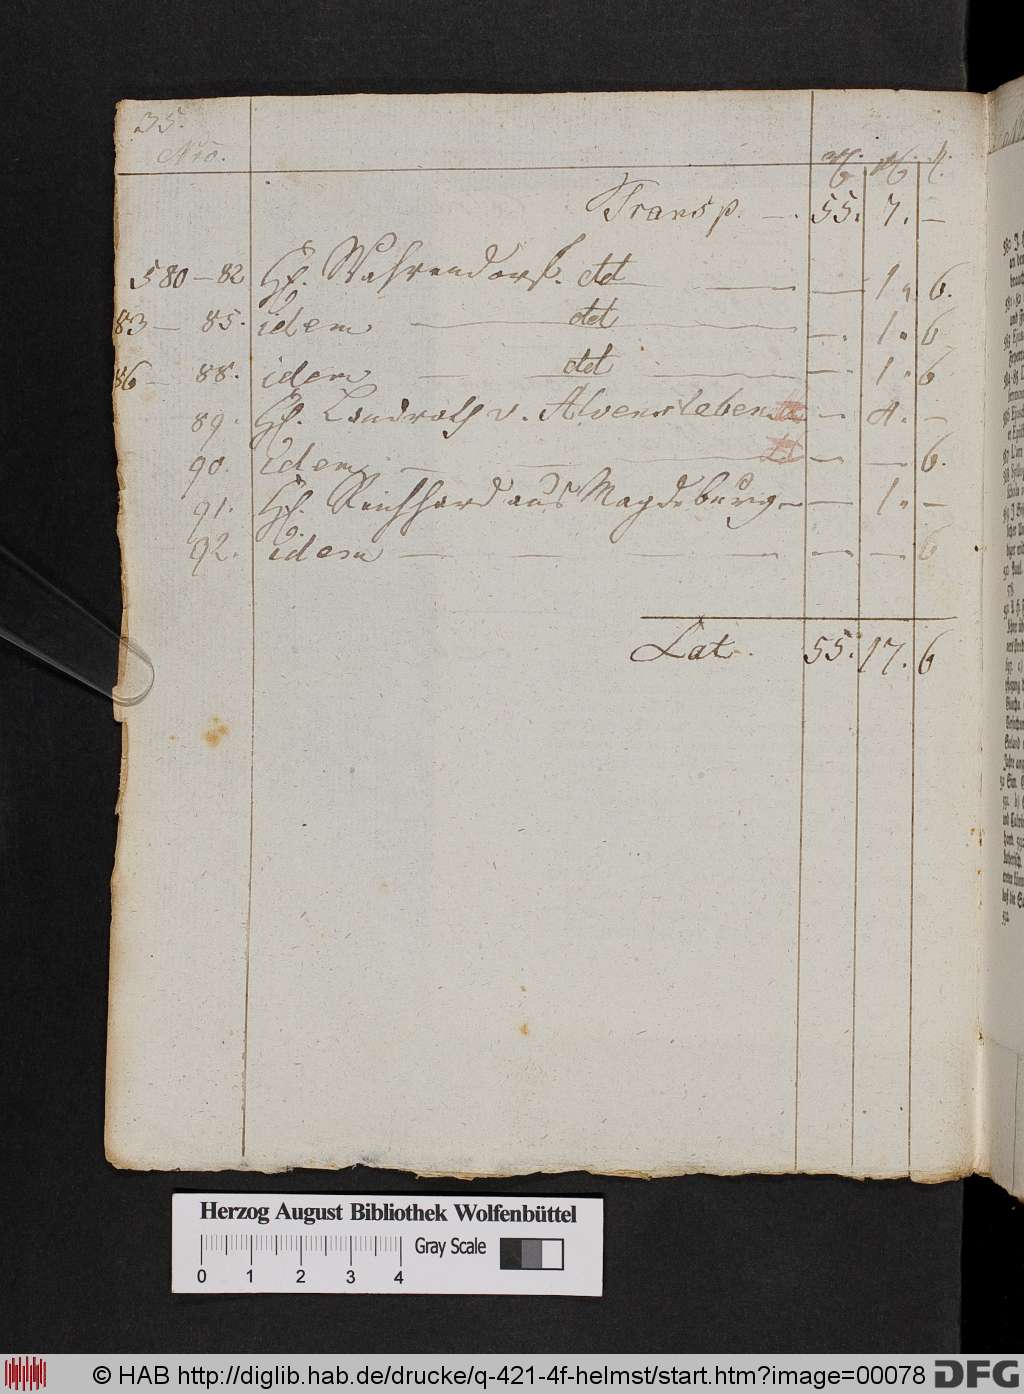 35.
Nro.
Transp. — . 55. 7. —
580 — 82 H. Wahrendorf. dd — — 1 „ 6.
83 — 85. idem — dd — — . 1 „ 6
86 — 88. idem — dd — — 1 „ 6
89. H. Landrath v. Alvensleben — 4. —
90. Idem — — — — — 6.
91. H. Reichhard aus Magdeburg — — 1 „ —
92. idem — — — — — 6
Lat. 55. 17. 6
Herzog August Bibliothek Wolfenbüttel
Gray Scale
0 1 2 3 4
© HAB http://diglib.hab.de/drucke/q-421-4f-helmst/start.htm?image=00078 DFG